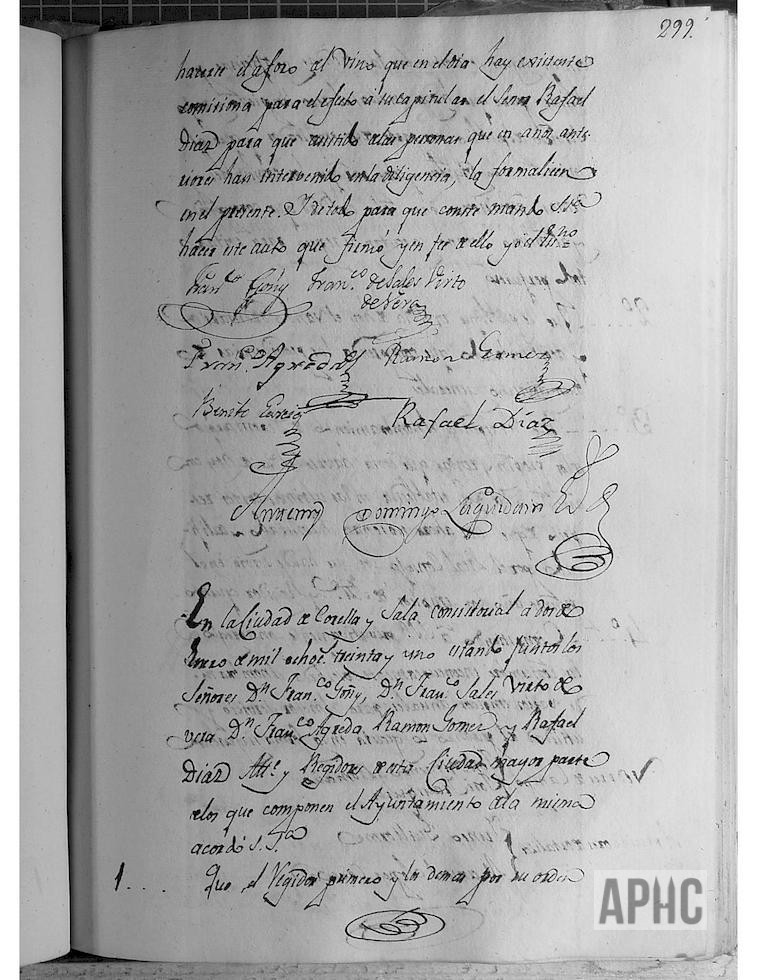 299.
hacerse el aforo del Vino que en el dia hay existente
comisiona para el efecto á su capitular el Senor Rafael
Diaz para que asistido de las personas que en años ante-
riores han intervenido en la diligencia, la formalicen
en el presente. I de todo para que conste mandó S.Sª
hacer este auto que firmó y en fee de ello yo el Essno
Franco Goñy Franco de Sales Virto
de Vera
Franco Agreda Ramon Gomez
Benito Garcia Rafael Diaz
Ante my Domingo Laquidain
En la Ciudad de Corella y Sala consistorial á dos de
Enero de mil ochoc. treinta y uno estando juntos los
Señores Dn Franco Goñy, Dn Franco Sales Virto de
vera Dn Franco Agreda Ramon Gomez y Rafael
Diaz Alle y Regidores de esta Ciudad mayor parte
de los que componen el Ayuntamiento de la misma
acordó S.Sª
1.... Que el Regidor primero y los demas por su orden
APHC